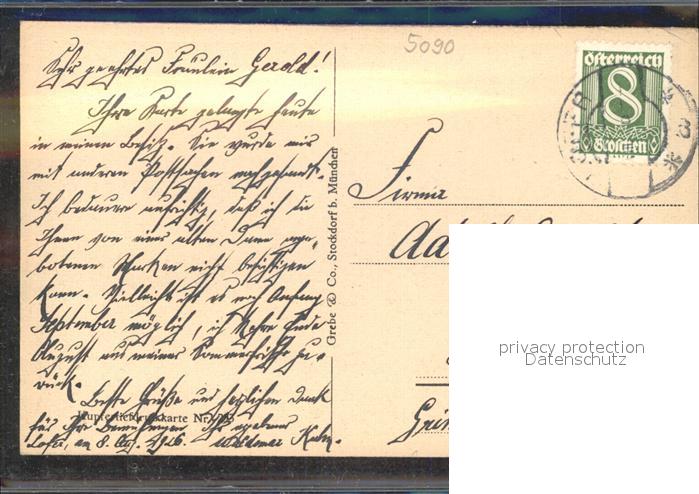 5090
österreich
8
Groschen
Sehr geehrtes Fräulein Gerold!
Ihre Karte gelangte heute
in meinen Besitz. Sie wurde mir
mit anderen Postsachen nachgesandt.
Ich bedauere aufrichtig, daß ich die
Ihnen von einer alten Dame ange-
botenen Marken nicht besichtigen
kann. Vielleicht ist es noch Anfang
September möglich, ich kehre Ende
August aus meiner Sommerfrische zu-
rück.
Beste Grüße und herzlichen Dank
für Ihre Bemühungen Ihr ergebener
Lofer, am 8. Aug. 1926. Waldemar
Kupfertiefdruckkarte Nr.
Grebe & Co., Stockdorf b. München
Firma
privacy protection
Datenschutz